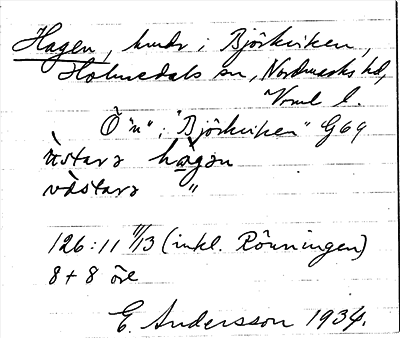 Hagen, hmdr i Björkviken,
Holmedals sn, Nordmarks hd,
Vrml l.
Ö "n" i "Björkviken" G69
ästarɜ hɑgən
västarɜ "
126:11 11/13 (inkl. Rönningen)
8+8 öre
E. Andersson 1934.